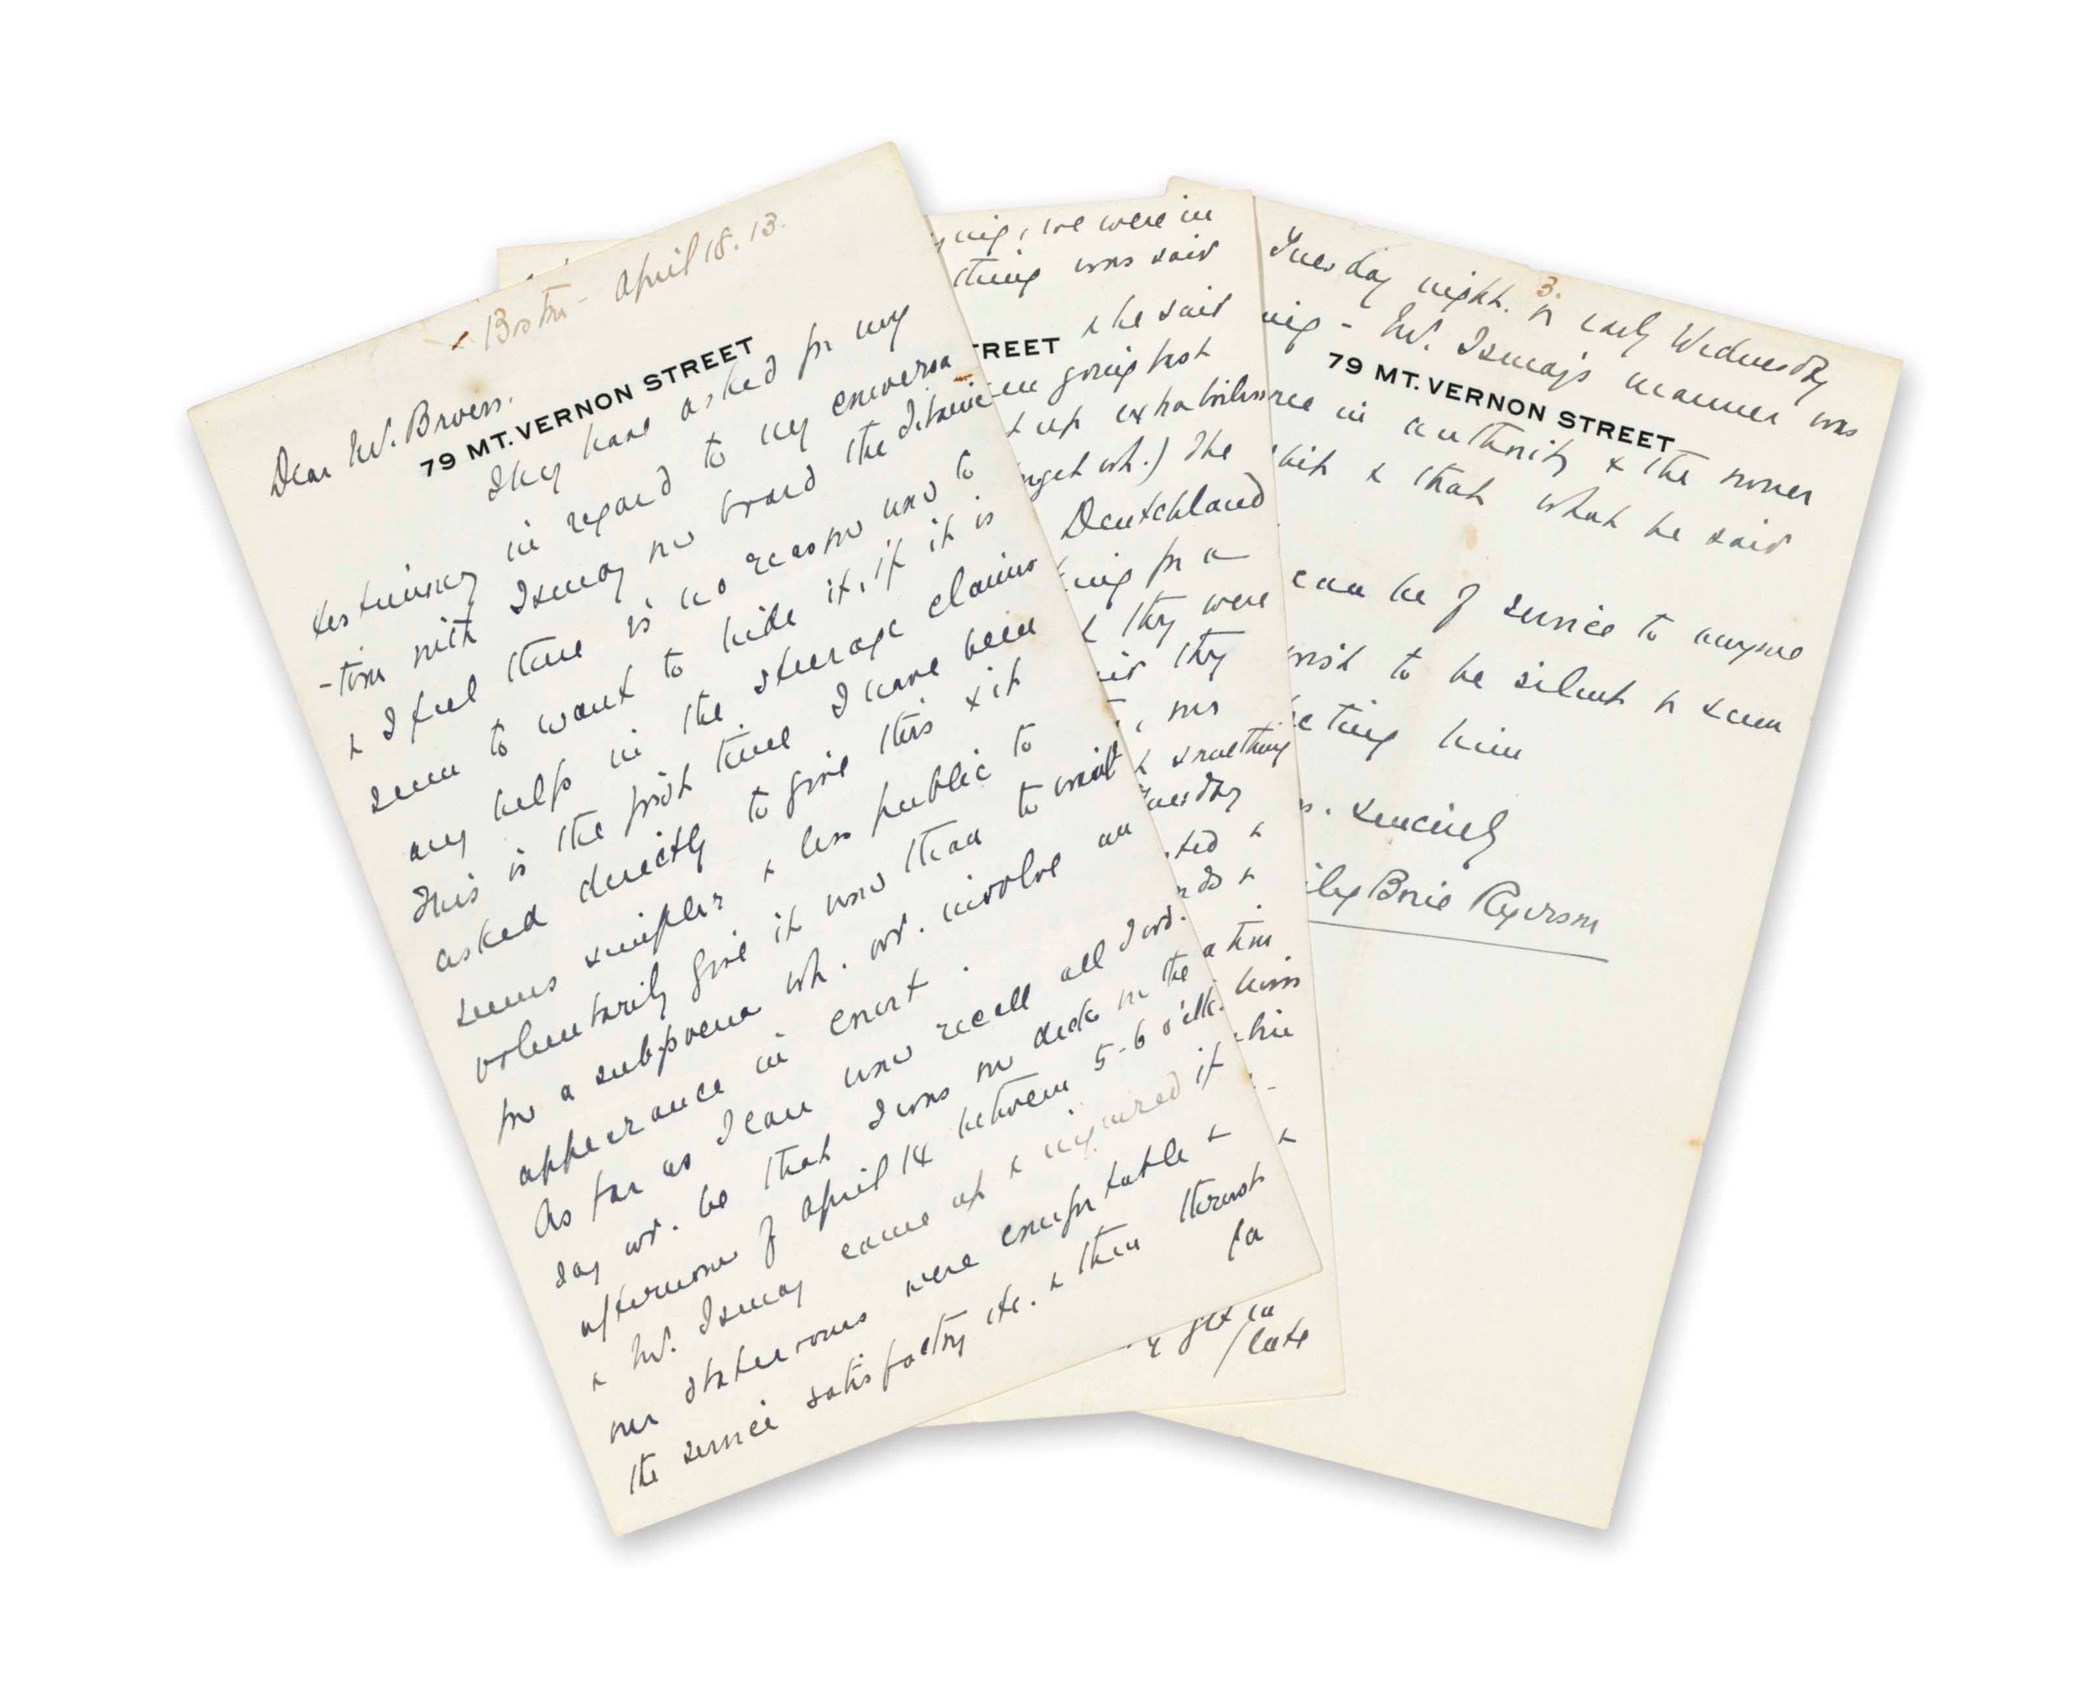 Boston - April 18. 13.
79 MT. VERNON STREET
Dear Mr. Brown.
They have asked for my
testimony in regard to my conversa
-tion with Ismay on board the Titanic
& I feel there is no reason now to
seem to want to hide it, if it is
any help in the steerage claims
This is the first time I have been
asked directly to give this & it
seems simpler & less public to
voluntarily give it now than to wait
for a subpoena wh. wd. involve an
appearance in court.
As far as I can now recall all I wd.
say wd. be that I was on deck on the
afternoon of April 14 between 5-6 o'clk.
& Mr. Ismay came up & inquired if
our staterooms were comfortable &
the service satisfactory etc. & then thrust
/a
we were in
thing was said
REET
& he said
going fast
up extra boilers
wh.) The
Deutchland
for a
they were
they
, our
something
Tuesday
&
&
a tim
him
&
get in
/late
3.
Tuesday night or early Wednesday
- Mr. Ismay's manner was
79 MT. VERNON STREET
in authority & the owner
& that what he said
can be of service to anyone
wish to be silent or seem
him
sincerely
Borie Ryerson